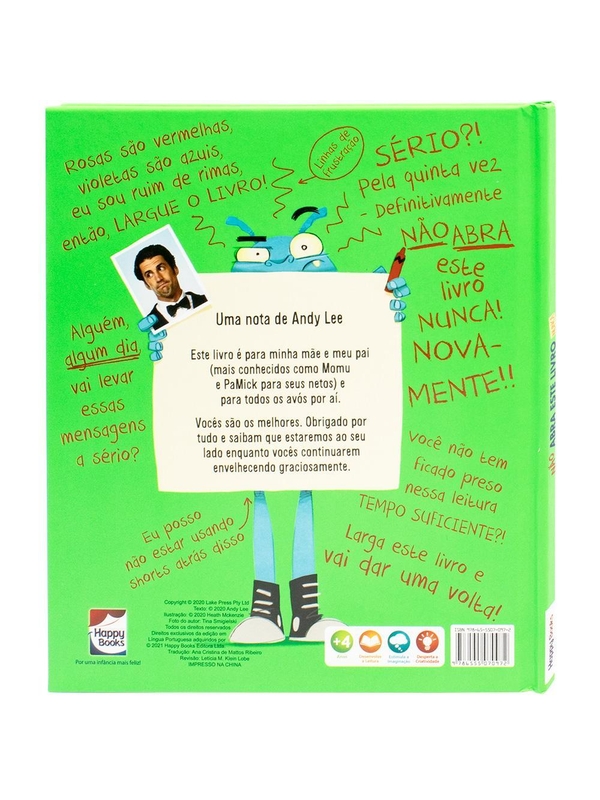 Rosas são vermelhas,
violetas são azuis,
eu sou ruim de rimas,
então, LARGUE O LIVRO!
Linhas de
frustração
SÉRIO?!
Pela quinta vez
- Definitivamente
NÃO ABRA
este
livro
NUNCA!
NOVA-
MENTE!!
Alguém,
algum dia
vai levar
essas
mensagens
a sério?
Uma nota de Andy Lee
Este livro é para minha mãe e meu pai
(mais conhecidos como Momu
e PaMick para seus netos) e
para todos os avós por aí.
Vocês são os melhores. Obrigado por
tudo e saibam que estaremos ao seu
lado enquanto vocês continuarem
envelhecendo graciosamente.
Você não tem
ficado preso
nessa leitura
TEMPO SUFICIENTE?!
Eu posso
não estar usando
shorts atrás disso
Larga este livro e
vai dar uma volta!
Copyright © 2020 Lake Press Pty Ltd
Texto: © 2020 Andy Lee
Ilustração: © 2020 Heath Mckenzie
Foto do autor: Tina Smigielski
Todos os direitos reservados.
Direitos exclusivos da edição em
Língua Portuguesa adquiridos por
© 2021 Happy Books Editora Ltda.
Tradução: Ana Cristina de Mattos Ribeiro
Revisão: Letícia M. Klein Lobe
IMPRESSO NA CHINA
Happy
Books
Por uma infância mais feliz!
+4
Anos
Estimula a
imaginação
Desperta a
Criatividade
ISBN 978-65-5507-097-2
9 786555 070972
NÃO ABRA ESTE LIVRO
Happy Books